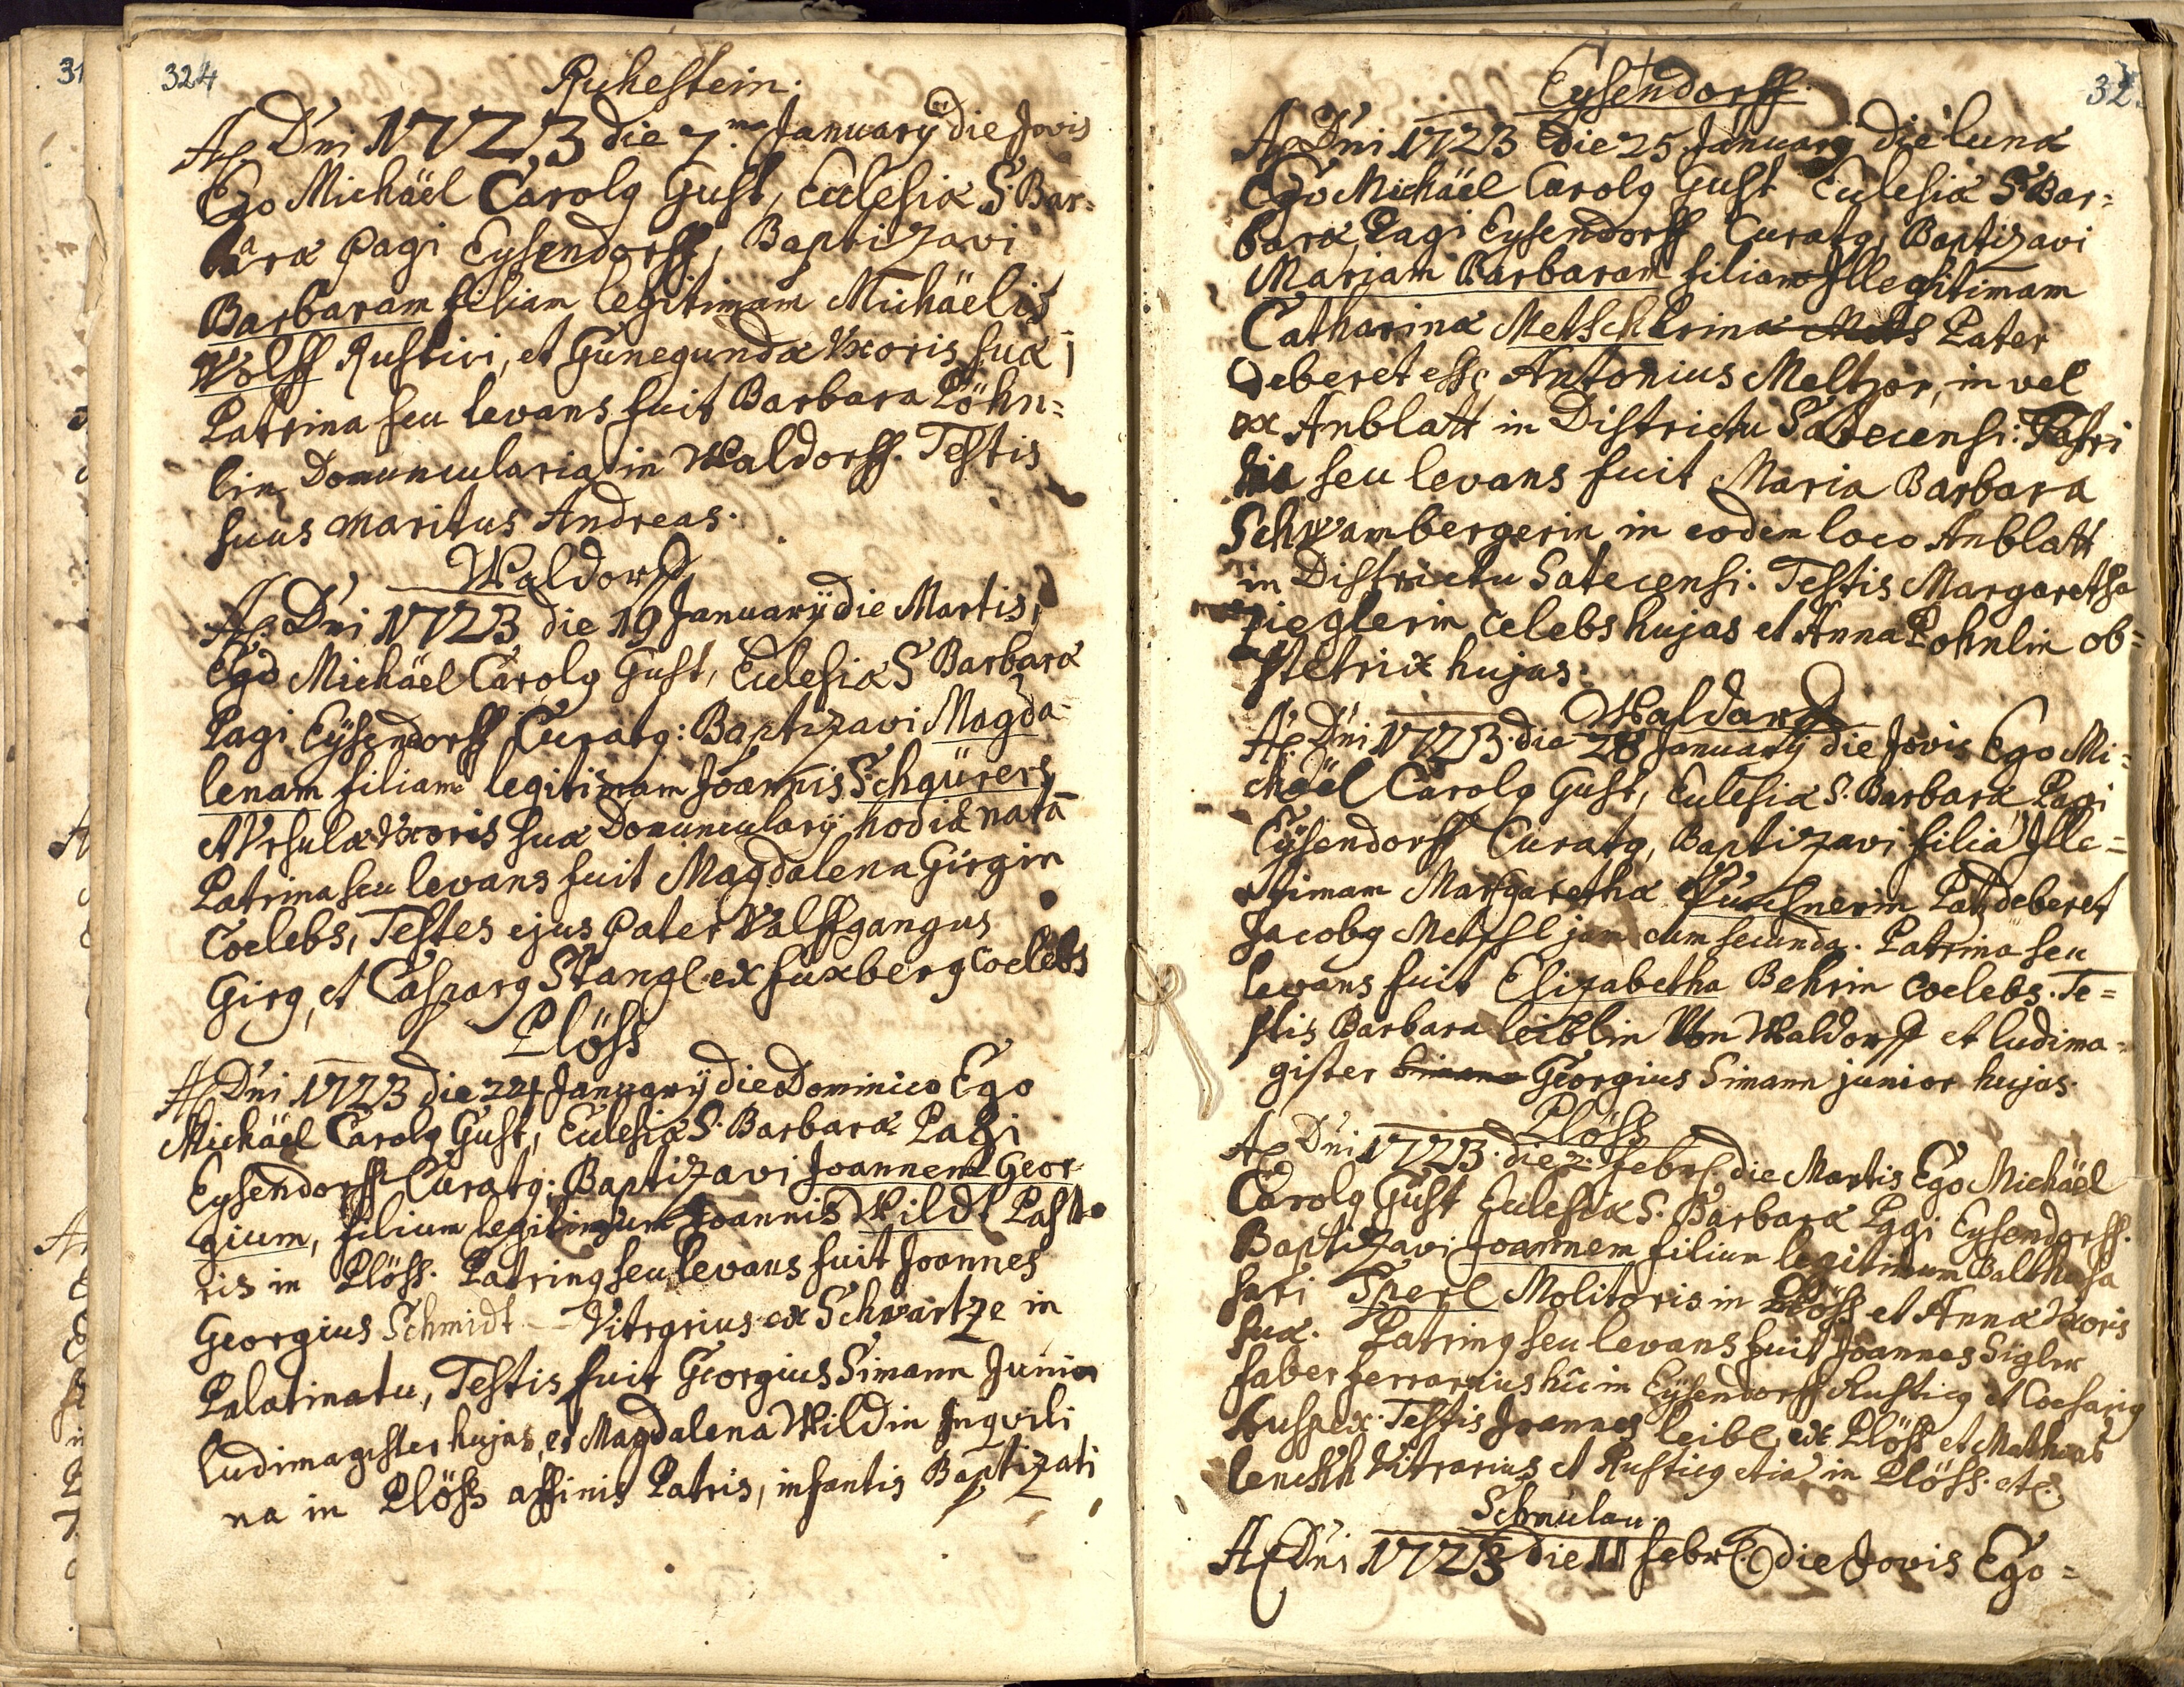 324
Ruhestein.
Aō Dni 1723 die 7ma Januarÿ die Jovis
Ego Michäel Carolg Gust, Ecclesiæ S. Bar=
baræ Pagi Eysendorff, Baptizavi
Barbaram filiam legitimam Michäelis
Wolff Rustici, et Gunegundæ Uxoris suæ;
Patrina seu levans fuit Barbara Pöhn=
lin Domuncularia in Waldorff. Testis
suus Maritus Andreas.
Waldorff
Aō Dni 1723 die 19 Januarÿ die Martis,
Ego Michäel Carolg Gust, Eclesiæ S Barbaræ
Pagi Eÿsendorff Curatg: Baptizavi Magda=
lenam filiam legitimam Joannis Schgürers
et Ursulæ Uxoris suæ Domuncularÿ hodie natā
Patrina seu levans fuit Magdalena Girgin
Coelebs, Testes ejus Pater Wolffgangus
Girg, et Casparg Stangl ex fuxberg Coelebs
Plöss
Aō Dni 1723 die 24 Januarÿ die Dominico Ego
Michäel Carolg Gust, Eclesiæ S. Barbaræ Pagi
Eysendorff Curatg: Baptizavi Joannem Geor=
gium, filium legitimum Joannis Wildt Pasto
ris in Plöss. Patring seu levans fuit Joannes
Georgius Schmidt Vitrarius ex Schwartze in
Palatinatu, Testis fuit Georgius Simann Junior
ludimagister hujas, et Magdalena Wildin Inqvili
na in Plöss affinis Patris, infantis Baptizati
32
Eysendorff
Aō Dni 1723 die 25 Januarÿ die lunæ
Ego Michäel Carolg Gust Eclesiæ S Bar=
baræ Pagi Eysendorff Curatg, Baptizavi
Mariam Barbaram filiam Illegitimam
Catharinæ Metschkrinæ Pater
deberet esse Antonius Meltzer, in vel
ex Anblatt in Districtu Satecensi: Patri
na seu levans fuit Maria Barbara
Schwambergerin in eodem loco Anblatt
in Districtu Satecensi: Testis Margaretha
Zieglerin celebs hujas et Anna Pohnlin ob=
stetrix hujas.
Waldorff
Aō Dni 1723 die 28 Januarÿ die Jovis Ego Mi=
chäel Carolg Gust, Eclesiæ S. Barbaræ Pagi
Eÿsendorff Curatg, Baptizavi filiā Ille=
gtimam Margarethæ Puschnerin Pat. deberet
Jacobg Metschl jam cum secunda. Patrina seu
levans fuit Elizabetha Behrin Coelebs. Te=
stis Barbara leiblin Von Waldorff et ludima=
gister Georgius Simann junior hujas.
Plöss
Aō Dni 1723 die 2 febr. die Martis Ego Michäel
Carolg Gust Eclesiæ S. Barbaræ Pagi Eysendorff.
Baptizavi Joannem filium legitimum Balthasa
sari Sperl Molitoris in Plöss et Annæ Uxoris
suæ. Patring seu levans fuit Joannes Sigler
faber ferrarius hic in Eÿsendorff Rusticg et Coesarig
Auspex. Testis Joannes leibl, ex Plöss et Mathias
lenckh Vitrarius et Rusticg etiā in Plöss. etc.
Schmulau.
Aō Dni 1723 die 11 febr. die Jovis Ego=